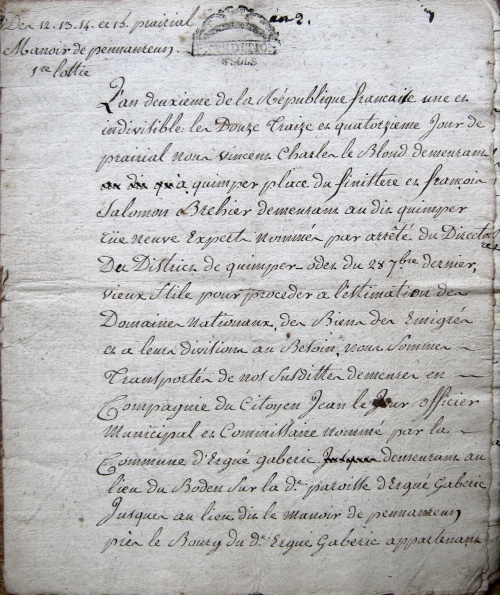 Des 12. 13. 14. et 15. prairial an 2.
Manoir de pennanreun
1re lottie
EXPEDITION
8 SOLS
L'an deuxieme de la République française une et
indivisible les Douze Traize et quatorzieme Jour de
prairial nous vincent Charles le Blond demeurant
a quimper place du finistere et francois
Salomon Brehier demeurant au dit quimper
rüe neuve Experts nommés par arrêté du Directoire
Du District de quimper-odet du 28 7bre dernier,
vieux Stile pour proceder a l'estimation des
Domaines Nationaux, des Biens des Emigrés
et a leurs divisions au Besoin, nous sommes
Transportés de nos susdittes demeures en
Compagnie du Citoyen Jean le Jour officier
Municipal et Commissaire nommé par la
Commune d'Ergué gaberic demeurant au
lieu du Boden sur la de. paroisse d'Ergué Gaberic
Jusques au lieu dit le manoir de pennanreun
près le Bourg du dt. Ergué Gaberic appartenant